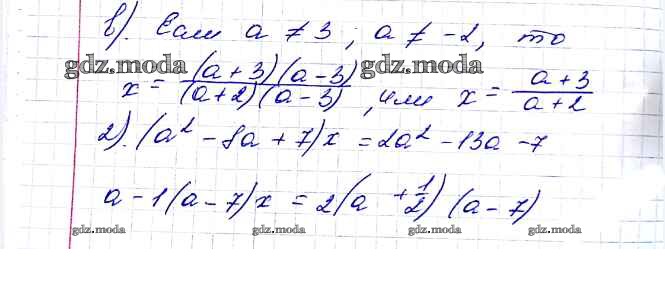 в). Если a ≠ 3; a ≠ -2, то
gdz.moda gdz.moda
x = (a+3)(a-3)/(a+2)(a-3), или x = a+3/a+2
2). (a² - 8a + 7)x = 2a² - 13a - 7
a - 1(a - 7)x = 2(a + 1/2)(a - 7)
gdz.moda gdz.moda gdz.moda gdz.moda